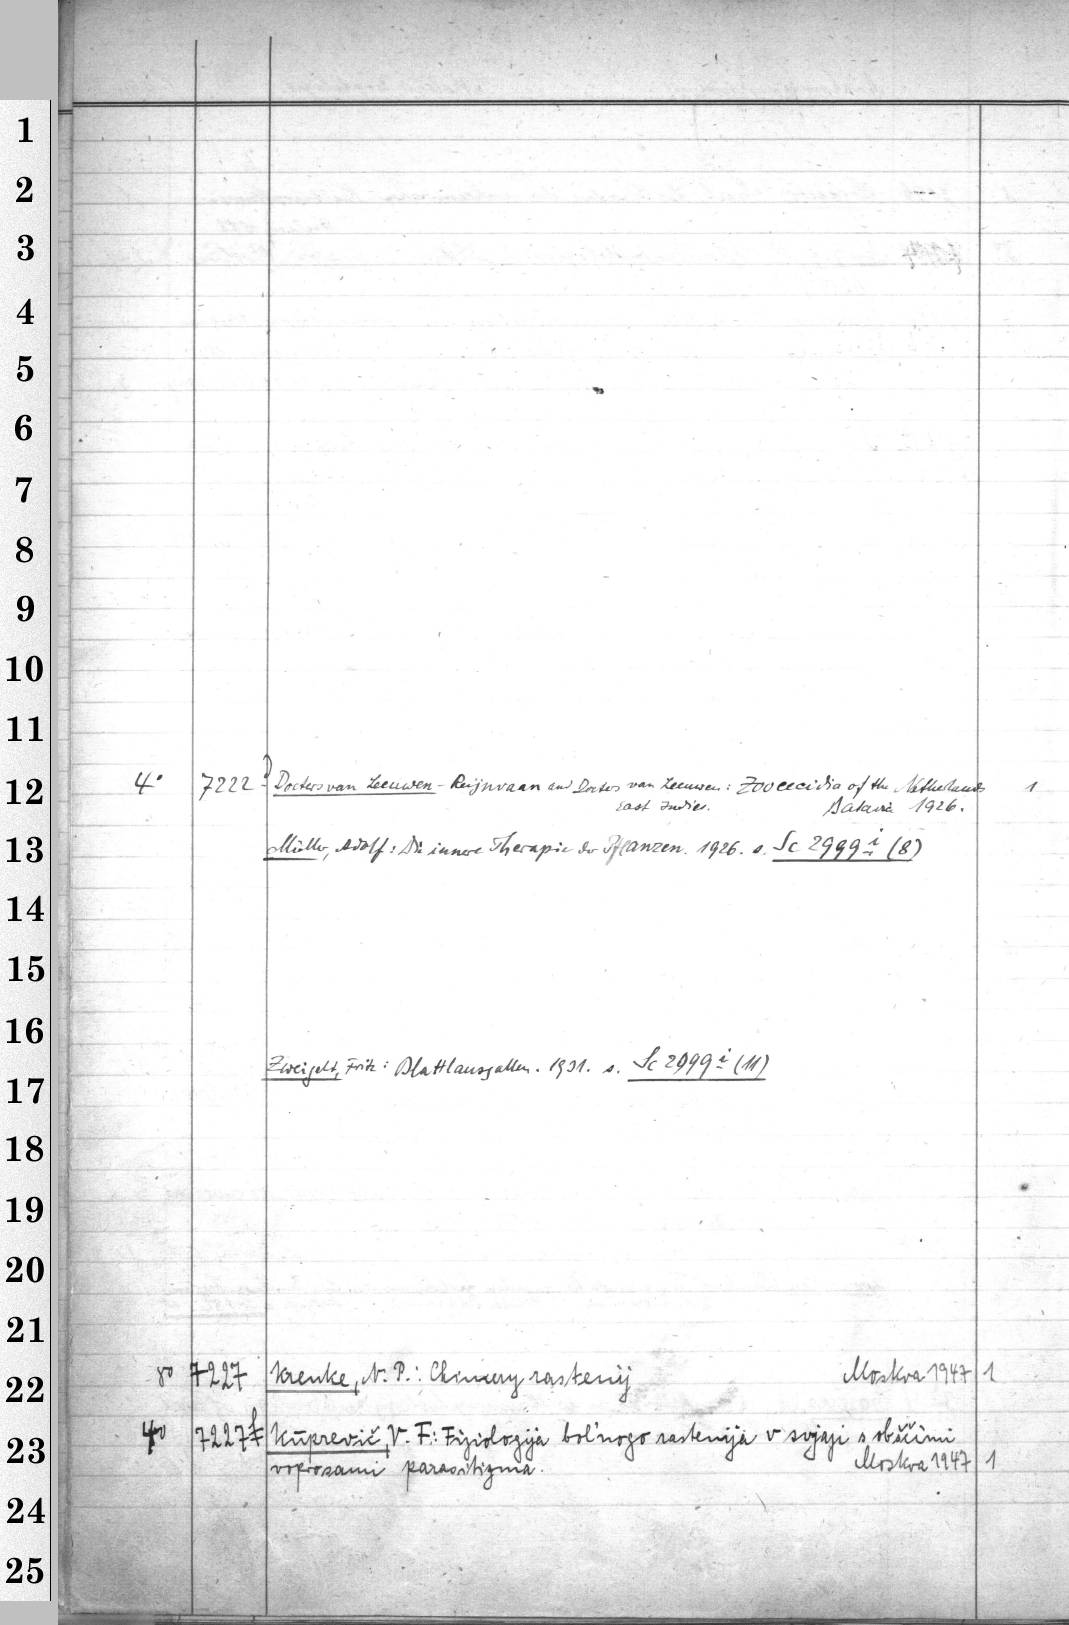 1
2
3
4
5
6
7
8
9
10
11
12
4° 7222 Docters van Leeuwen - Reijnvaan and Docters van Leeuwen: Zoocecidia of the Netherlands 1
East Indies. Batavia 1926.
13
Müller, Adolf: Die innere Therapie der Pflanzen. 1926. s. Sc 2999 i (8)
14
15
16
Zweigelt, Fritz: Blattlausgallen. 1931. s. Sc 2999 i (11)
17
18
19
20
21
22
8o 7227 Krenke, N. P.: Chimery rastenij Moskva 1947 1
23
4o 7227 Kuprevič, V. F.: Fiziologija bol'nogo rastenija v svjazi s obščimi
voprosami parasitizma. Moskva 1947 1
24
25